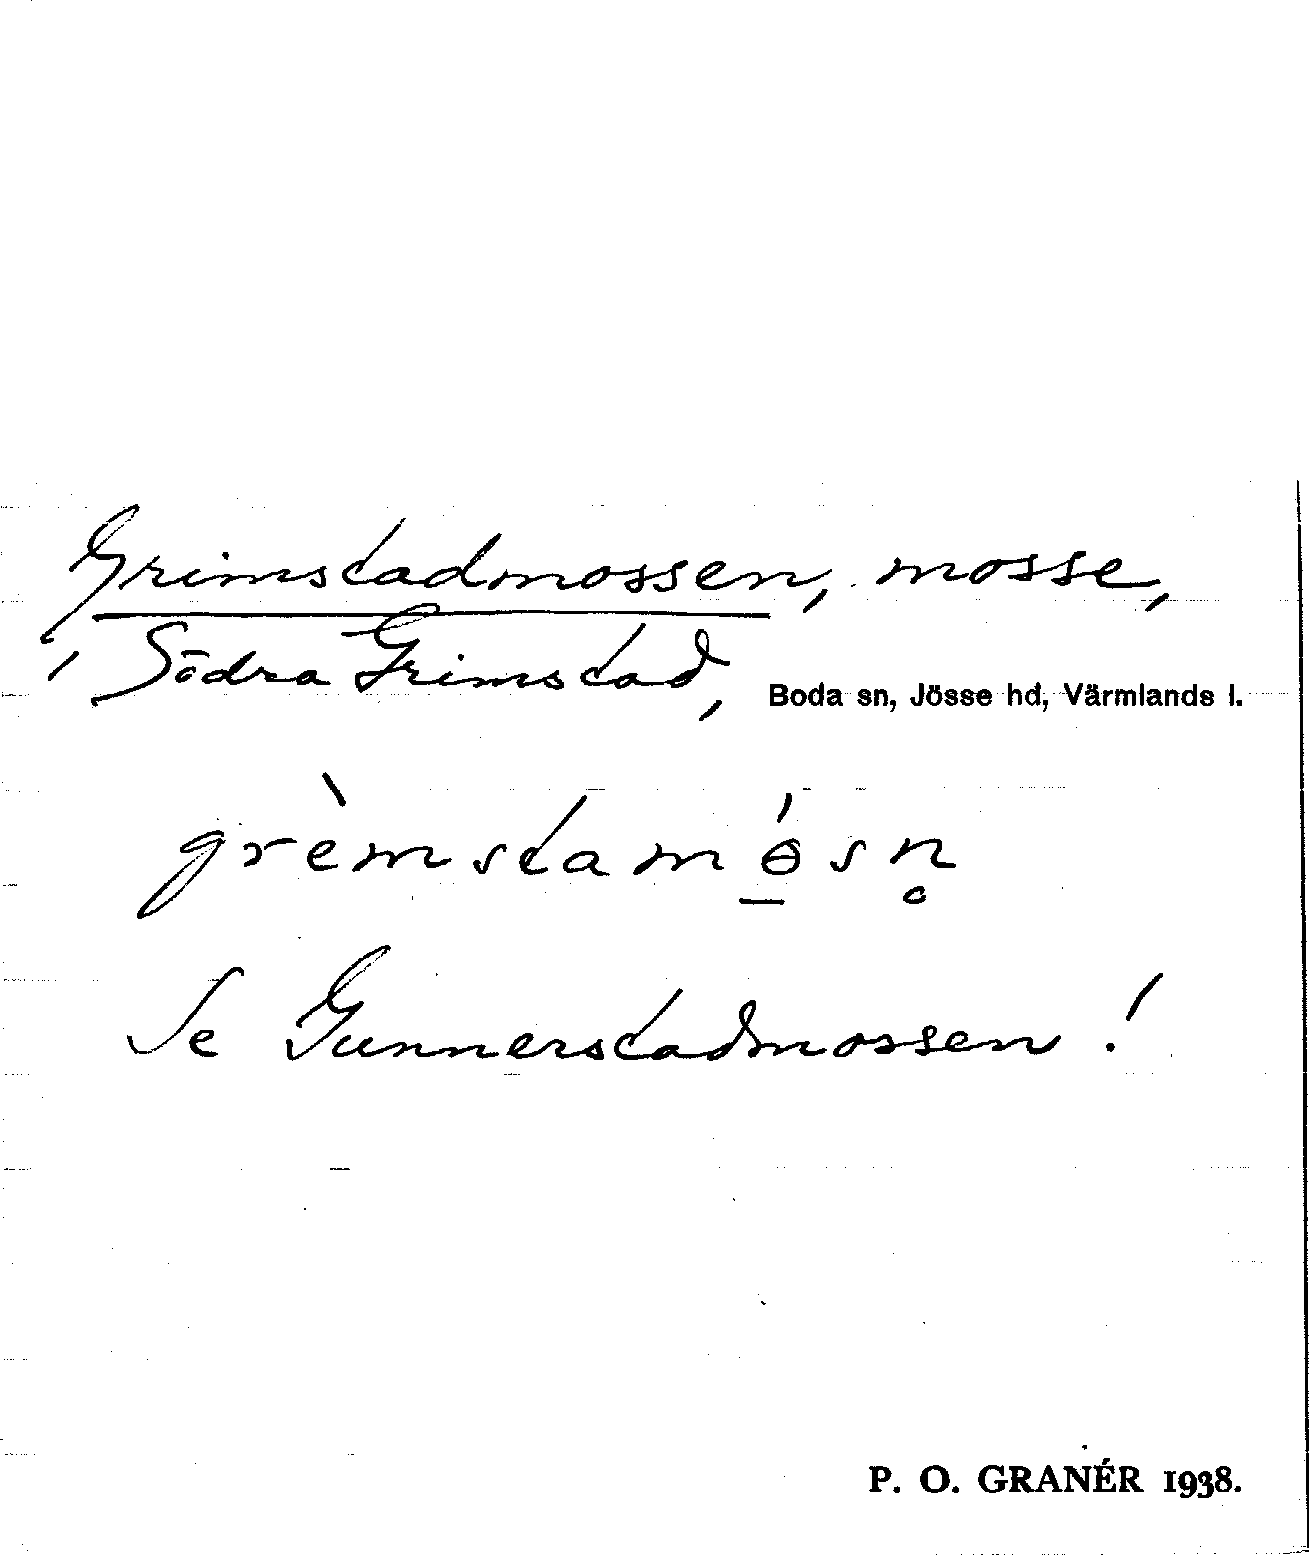 Grimstadmossen, mosse,
i Södra Grimstad, Boda sn, Jösse hd, Värmlands l.
grèmstamɵ́sn̥
Se Gunnerstadmossen!
P. O. GRANÉR 1938.